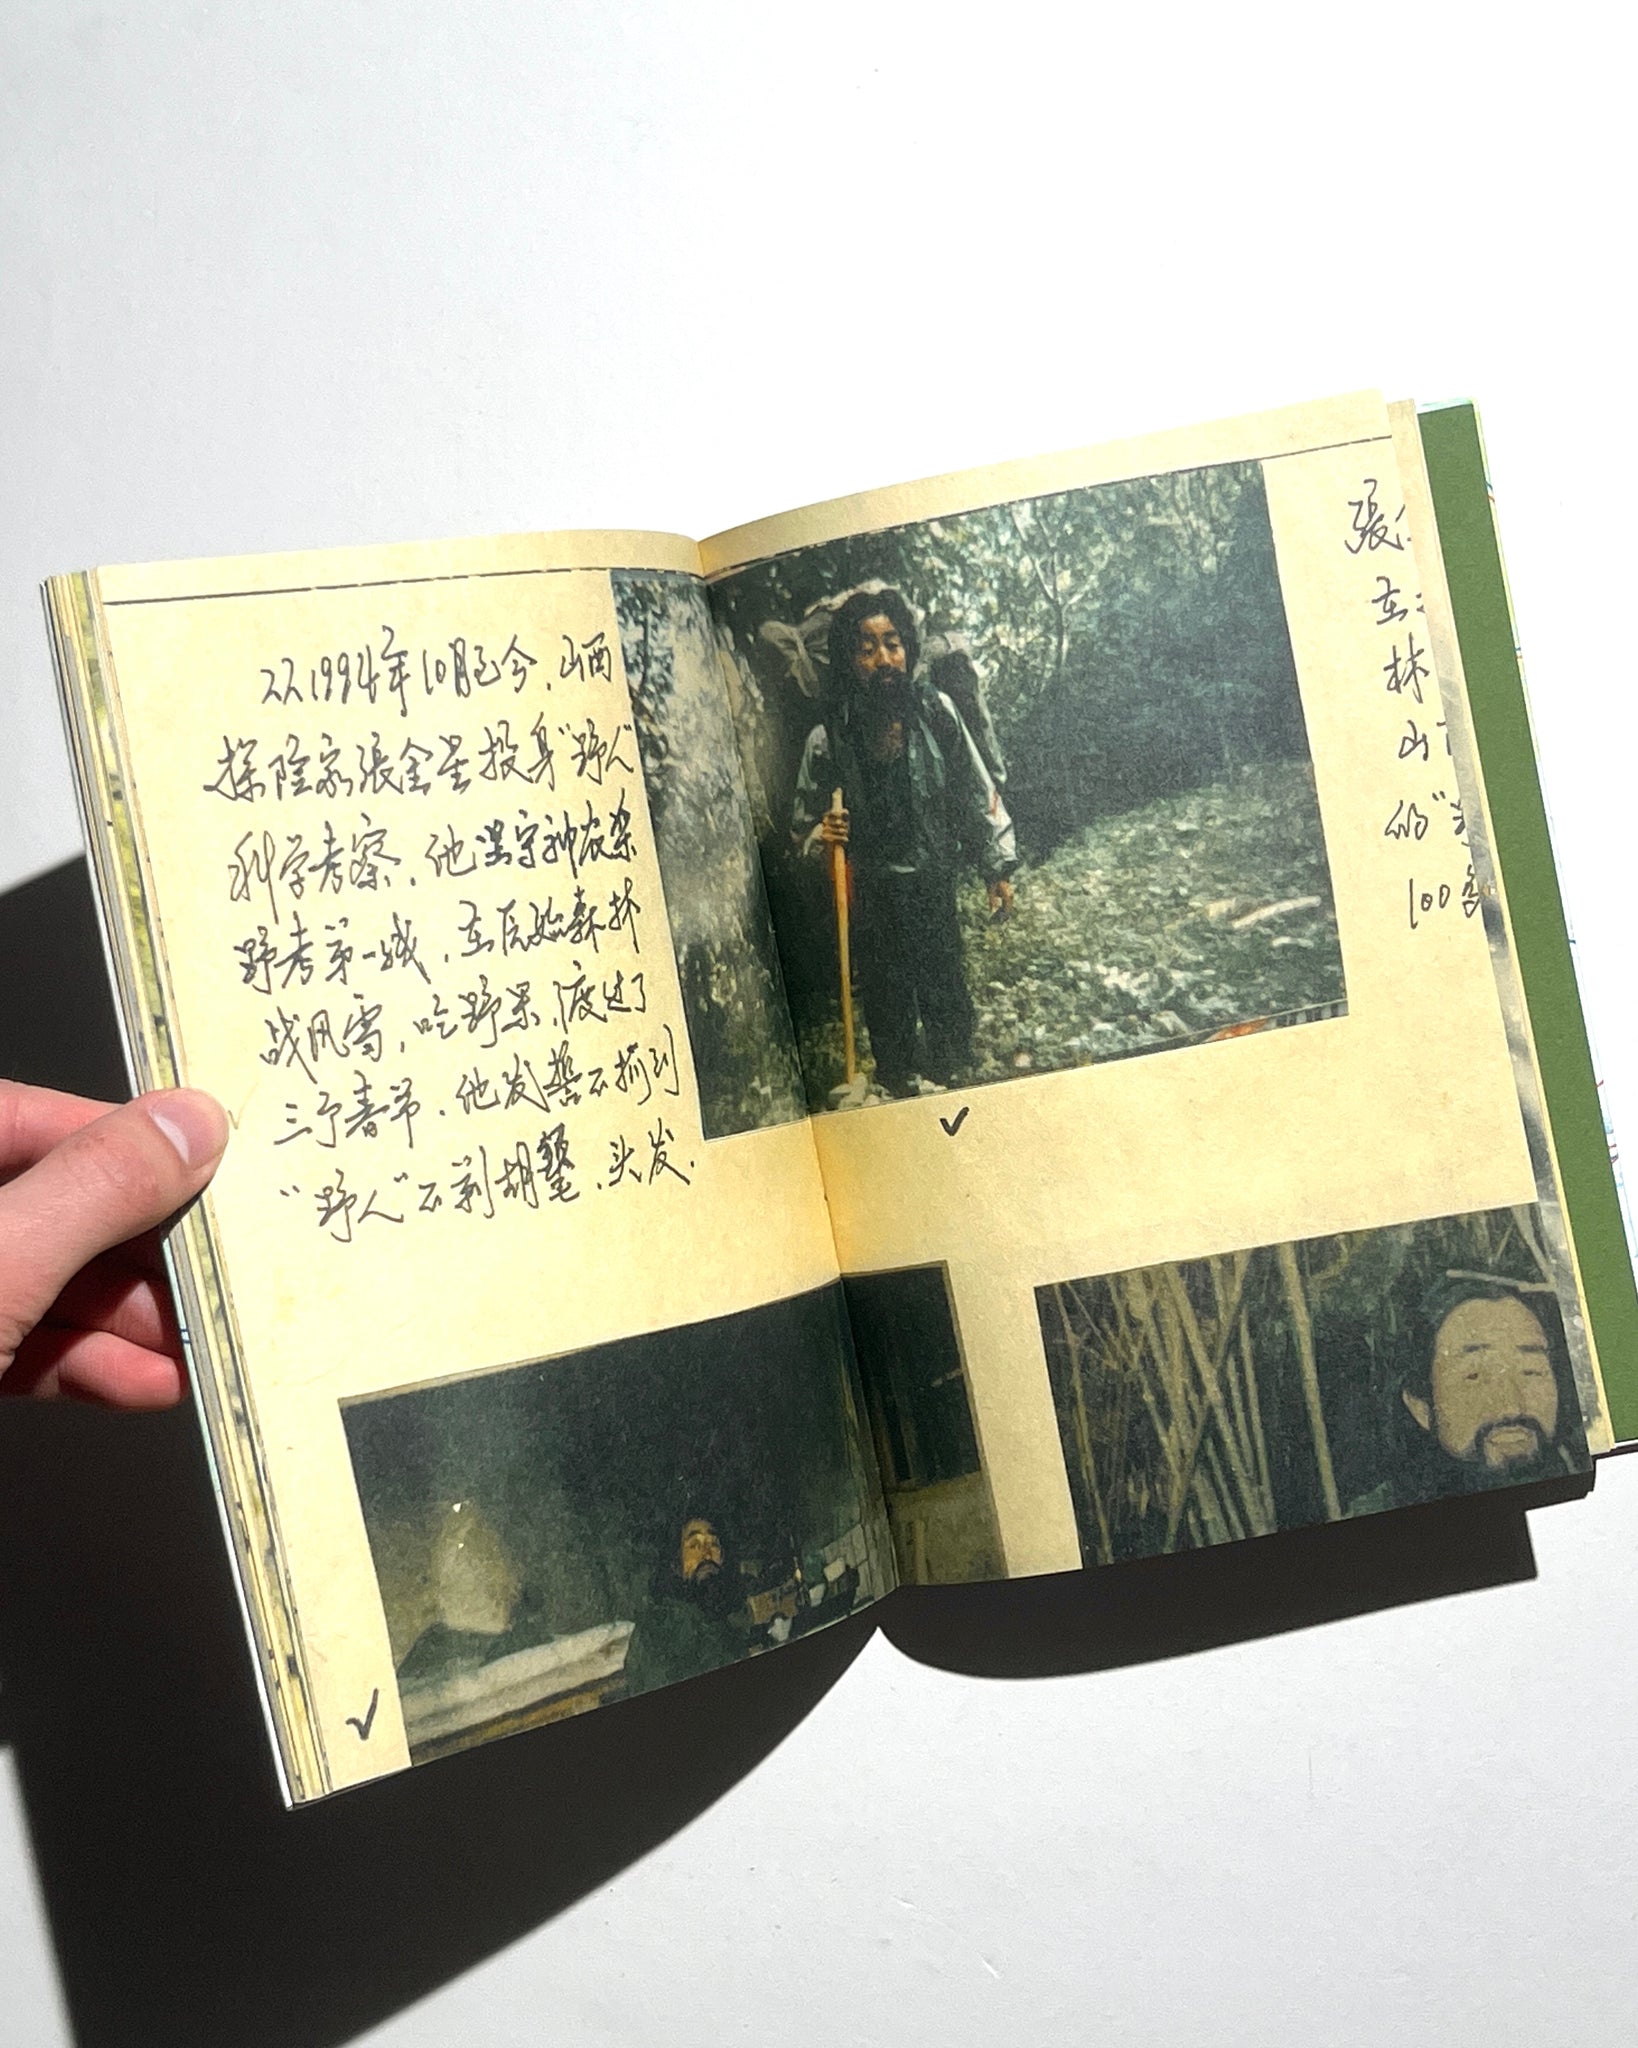 从1994年10月至今，山西
探险家張金星投身“野人”
科学考察，他坚守神农架
野考第一线，在原始森林
战风雪，吃野果，渡过了
三个春节，他发誓不抓到
“野人”不剃胡鬚、头发．
張
在
林
山
的“
100多